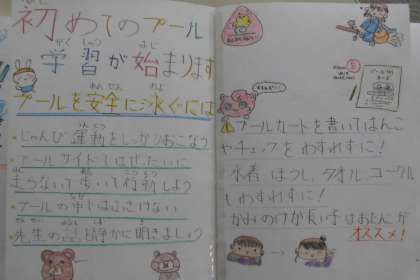 初めてのプール
がくしゅう
学習が始まります
あんぜん
プールを安全に泳ぐには
うんどう
・じゅんび運動をしっかりおこなう
・プールサイドではぜったいに
走らないで歩いて行動しよう
・プールの中ではふざけない
・先生の話を静かに聞きましょう
プールカートを書いてはんこ
やチェックをわすれずに!
水着 ぼうし、タオル、ゴーグル
もわすれずに!
かみのけが長い子はおだんごが
オススメ!